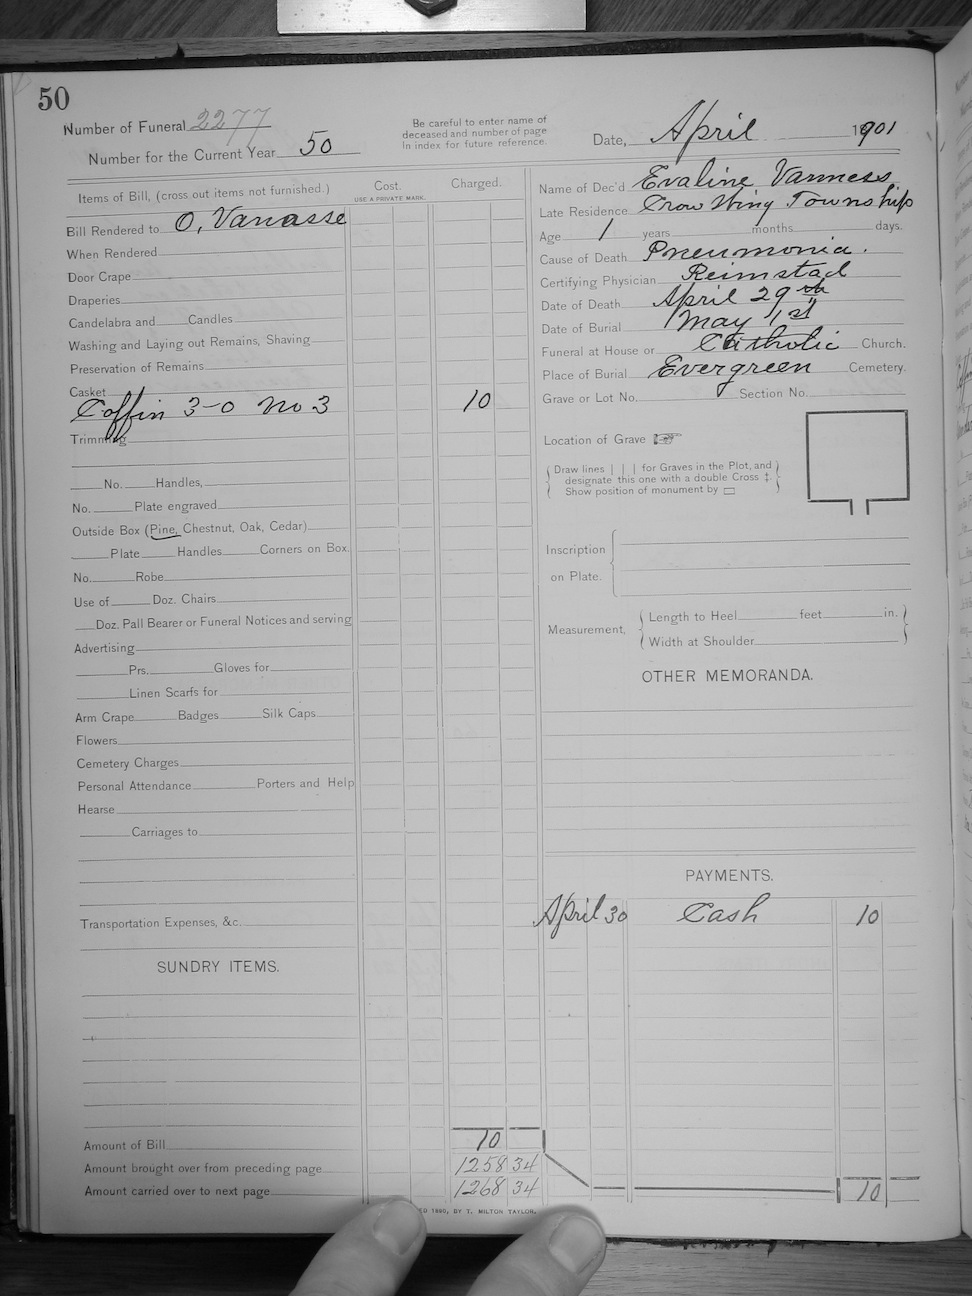 50
Number of Funeral 2277
Number for the Current Year 50
Be careful to enter name of
deceased and number of page
in index for future reference.
Date, April 1901
Items of Bill, (cross out items not furnished.)
Cost.
USE A PRIVATE MARK.
Charged.
Bill Rendered to O. Vanasse
When Rendered
Door Crape
Draperies
Candelabra and Candles
Washing and Laying out Remains, Shaving
Preservation of Remains
Casket
Coffin 3-0 No 3 10
Trimming
No. Handles,
No. Plate engraved
Outside Box (Pine, Chestnut, Oak, Cedar)
Plate Handles Corners on Box.
No. Robe
Use of Doz. Chairs
Doz. Pall Bearer or Funeral Notices and serving
Advertising
Prs. Gloves for
Linen Scarfs for
Arm Crape Badges Silk Caps
Flowers
Cemetery Charges
Personal Attendance Porters and Help
Hearse
Carriages to
Transportation Expenses, &c.
SUNDRY ITEMS.
Amount of Bill 10
Amount brought over from preceding page 1258 34
Amount carried over to next page 1268 34
Name of Dec'd Evaline Vanness
Late Residence Crow Wing Township
Age 1 years months days.
Cause of Death Pneumonia.
Certifying Physician Reimstad
Date of Death April 29th
Date of Burial May 1st
Funeral at House or Catholic Church.
Place of Burial Evergreen Cemetery.
Grave or Lot No. Section No.
Location of Grave
Draw lines | | | for Graves in the Plot, and
designate this one with a double Cross ‡.
Show position of monument by ▭
Inscription
on Plate.
Measurement,
Length to Heel feet in.
Width at Shoulder
OTHER MEMORANDA.
PAYMENTS.
April 30 Cash 10
10
1890, BY T. MILTON TAYLOR.